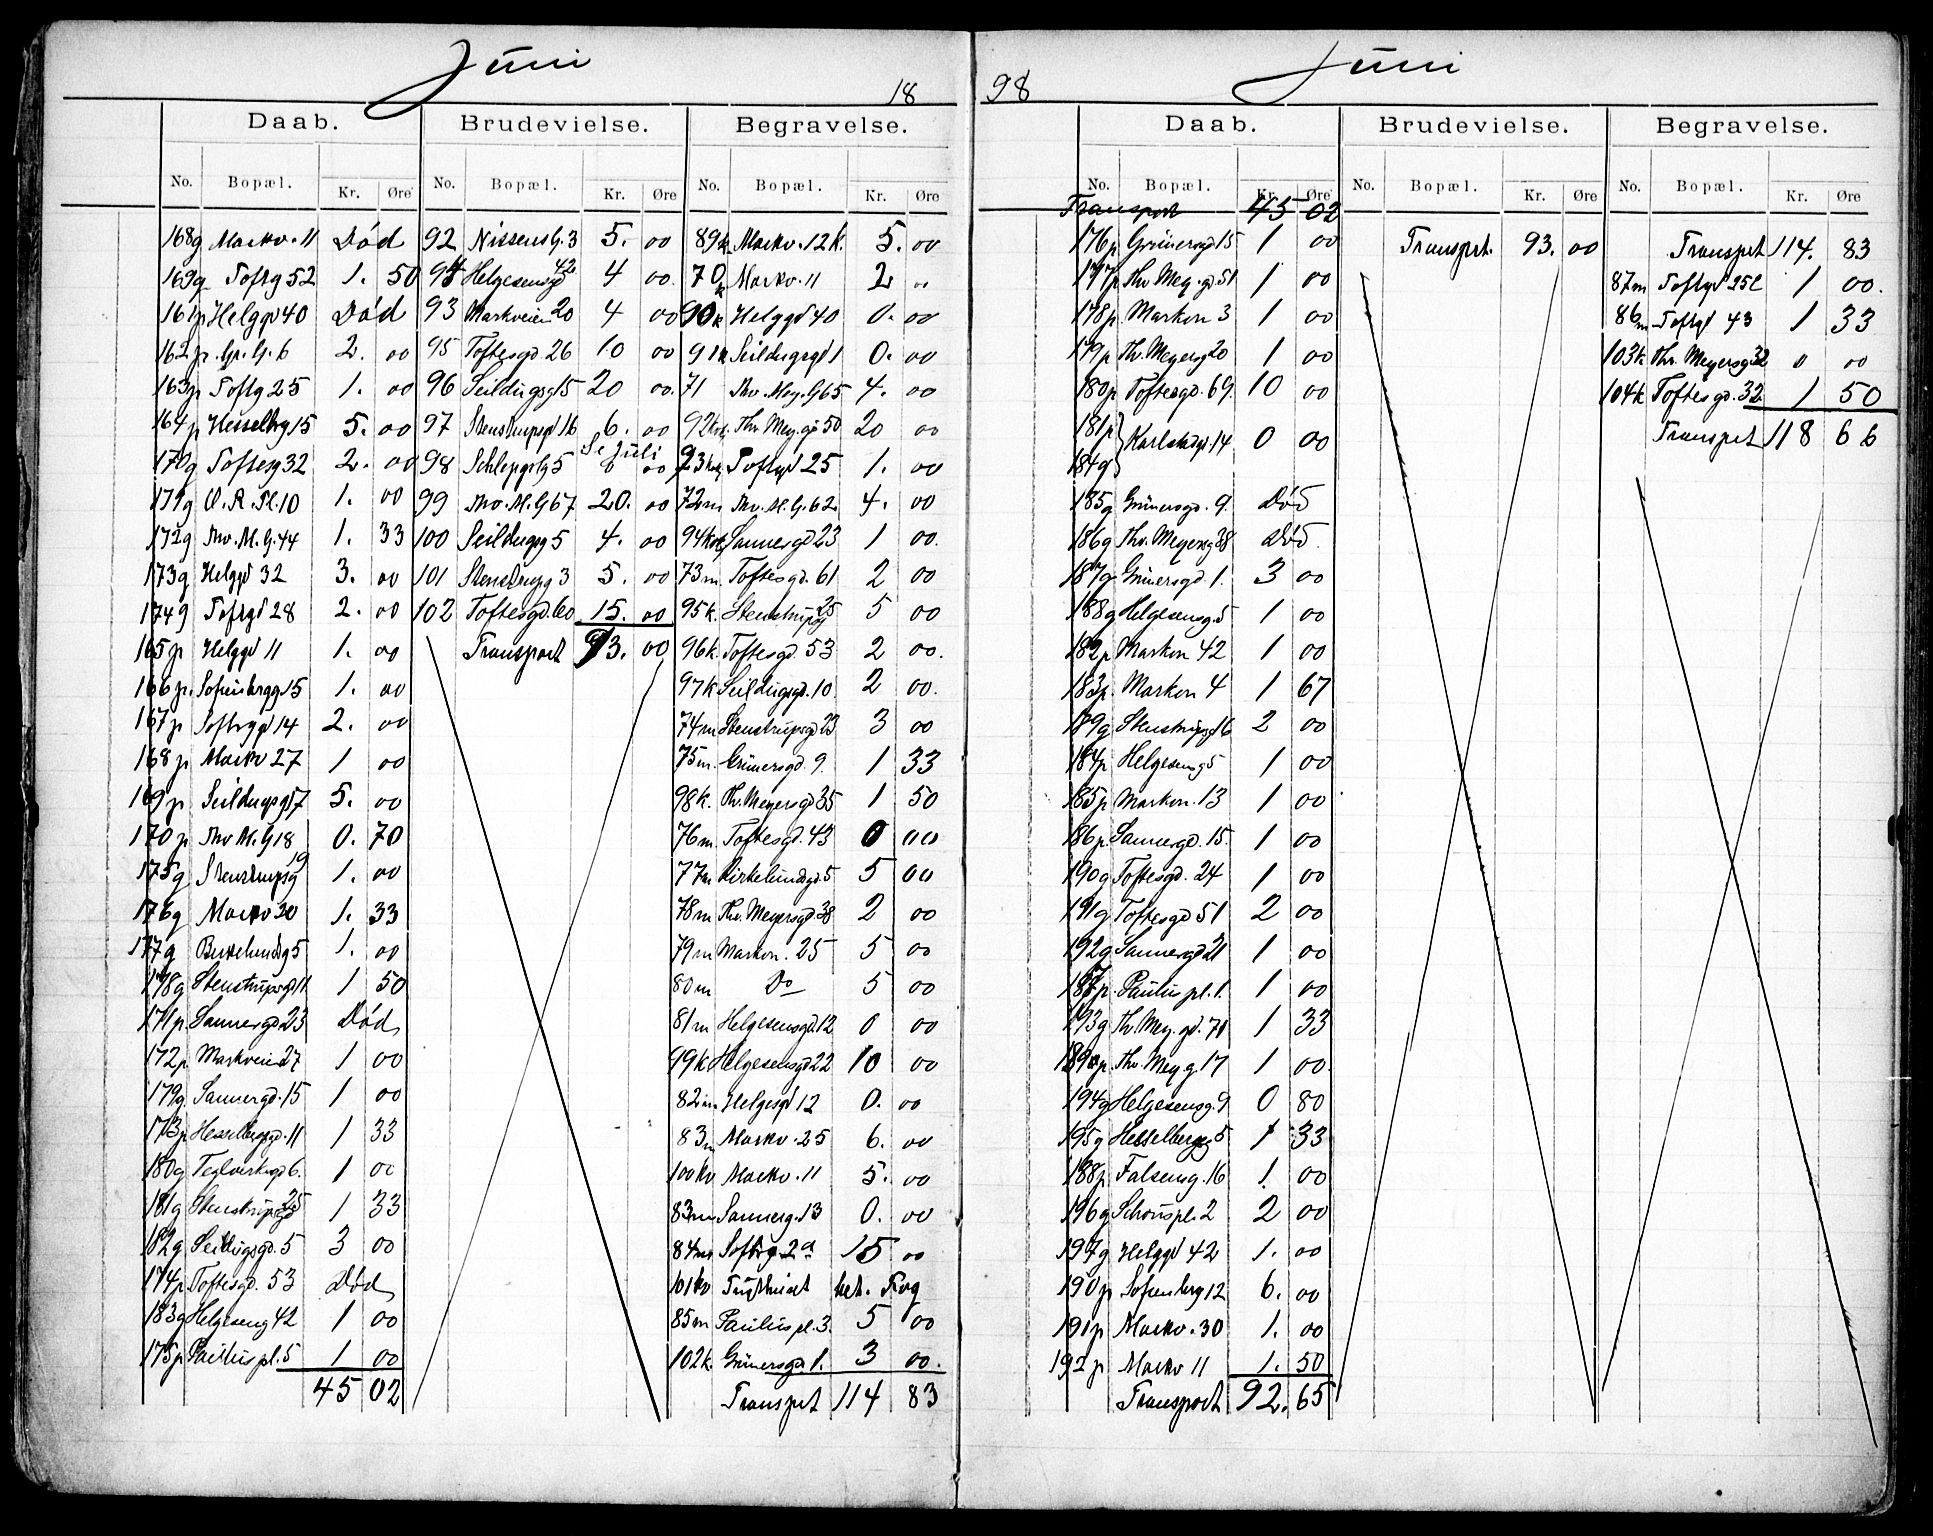 Juni
18
Daab. Brudevielse. Begravelse.
No. Bopæl. Kr. Øre No. Bopæl. Kr. Øre No. Bopæl. Kr. Øre
168g Markv. 11 Død 92 Nissens G. 3 5. 00 89k Markv. 12 k. 5. 00
169g Toftg 52 1. 50 94 Helgesensg 42 4 00. 70 Markv. 11 2 "
161p Helggd 40 Død 93 Markveien 20 4 00 90k Helggd 40 0. 00
162p. Gr. G. 6 2. 00 95 Toftesgd 26 10 00 91k Seildugsgd 1 0. 00
163p Toftg 25 1. 00 96 Seildugsg 15 20 00. 71 Thv. Mey. G 65 4. 00
164p Hesselbg 15 5. 00 97 Stenstrupsgd 16 6. 00 92 Thv. Mey. gd 50 20 00
Se Juli
170g Tofteg 32 2. 00 98 Schleppesg 5 6 00 93 Toftgd 25 1. 00
171g O. R. Pl. 10 1. 00 99 Thv. M. G 67 20. 00 72m Thv. M. G. 62 4. 00
172g Thv. M. G. 44 1. 33 100 Seildugsg 5 4. 00 94 Sannergd 23 1 00.
173g Helggd 32 3. 00 101 Stenstrupg 3 5. 00 73m. Toftesgd. 61 2 00
174g Toftgd 28 2. 00 102 Toftesgd. 60 15. 00 95k. Stenstrupsg 25 5 00
165p Helggd 11 1. 00 Transport 93. 00 96k. Toftesgd. 53 2 00.
166p. Sofienbergg 15 1. 00 97k Seildugsgd. 10 2 00.
167p Sofbrggd 14 2. 00 74m Stenstrupsgd 23 3 00
168p Markv 27 1 00 75m. Grünersgd. 9. 1 33
169p Seildugsgd 7 5. 00 98k. Th. Meyersgd 35 1 50
170p Thv M. G 18 0. 70 76m. Toftesgd. 43 0 00
175g Stenstrupsg 19 1. 00 77m Birkelundsgd. 5 5 00
176g Markv 30 1. 33 78m Th. Meyersgd. 38 2 00
177g Birkelundsg 5 1. 00 79m Markvn. 25 5 00
178g Stenstrupsgd 11 1 50 80m Do 5 00
171p. Sannergd 23 Død 81m Helgesensgd. 12 0 00
172p Markveien 27 1 00 99k Helgesensgd 22 10 00
179g. Sannergd. 15 1 00 82m Helgesgd 12 0. 00
173p Hesselbergsgd. 11 1 33 83m Markv. 25 6. 00
180g Teglverksgd 6. 1 00 100kv Markv. 11 5. 00
181g Stenstrupsgd 25 1 33 83m Sannerg. 13 0. 00
182g Seildugsgd. 5 3 00 84m Sofbrg 2a 15 00
174p Toftesgd. 53 Død 101kv Tugthuset bet. Tog
183g Helgeseng 42 1 00 85m Paulus pl. 3. 5 00
175p Paulus pl. 5 1 00 102k. Grünersgd. 1. 3 00.
45 02 Transprt 114 83
Juni
98
Daab. Brudevielse. Begravelse.
No. Bopæl. Kr. Øre No. Bopæl. Kr. Øre No. Bopæl. Kr. Øre
Transport 45 02
176p Grünersgd 15 1 00 Transprt. 93. 00 Transprt 114. 83
177p Thv Mey. gd. 51 1 00 87m Toftgd 25c 1 00.
178p. Markvn 3 1 00 86m Toftgd 43 1 33
179p. Th. Meyersg 20 1 00 103k Th. Meyersg. 32 0 00
180p Toftesgd. 69. 10 00 104k Toftesgd. 32. 1 50
181p Karlstadgd. 14 0 00 Transprt 118 66
184g
185g Grünersgd. 9. Død
186g Thv. Meyersg 38 Død.
187g Grünersgd. 1. 3 00
188g Helgesensg. 5 1 00
182p Markvn 42 1 00
183p. Markvn 4 1 67
189g Stenstrupsgd 16 2 00
184p Helgesensg 5 1 00
185p Markvn. 13 1 00
186p. Sannergd. 15. 1 00
190g Toftesgd. 24 1 00
191g Toftesgd 51 2 00
192g Sannergd 21 1 00
187p. Paulus pl. 1. 1 00
193g Th. Mey. gd. 71 1 33
189p. Thv. Mey g. 17 1 00
194g Helgesensg. 9 0 80
195g Hesselbergsg 5 1 33
188p Falsensg. 16 1. 00
196g Schouspl. 2 2 00
197g Helggd 42 1. 00
190p Sofienberg 12 6. 00
191p Markv. 30 1. 00
192p Markv 11 1. 50
Transport 92. 65